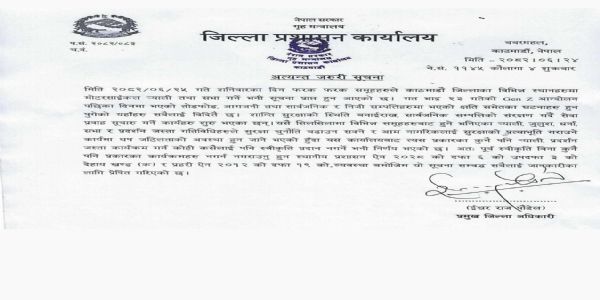 नेपाल सरकार
गृह मन्त्रालय
जिल्ला प्रशासन कार्यालय
प.सं. २०८२/०८३
च.नं.
बबरमहल,
काठमाडौं, नेपाल
मिति - २०८२।०६।२४
ने.सं. ११४५ कौलागा ४ शुक्रबार
अत्यन्त जरुरी सूचना
मिति २०८२/०६/२५ गते शनिवारका दिन फरक फरक समूहहरुले काठमाडौं जिल्लाका विभिन्न स्थानहरुमा
मोटरसाईकल र्‍याली तथा सभा गर्ने भनी सूचना प्राप्त हुन आएको छ। गत भाद्र २३ गतेको Gen Z आन्दोलन
पछिका दिनमा भएको तोडफोड, आगजनी तथा सार्वजनिक र निजी सम्पत्तिहरुमा भएको क्षति समेतका घटनाहरु हुन
पुगेको यहाँहरु सबैलाई विदितै छ। शान्ति सुरक्षाको स्थिति बनाईराख्न, सार्वजनिक सम्पत्तिको संरक्षण गर्दै सेवा
प्रवाह सुचारु गर्ने कार्यहरु शुरु भएका छन्। यसै सिलसिलामा विभिन्न समूहहरुबाट हुने भनिएका र्‍याली, जुलुस, धर्ना,
सभा र प्रदर्शन जस्ता गतिविधिहरुले सुरक्षा चुनौति बढाउन सक्ने र आम नागरिकलाई सुरक्षाको प्रत्याभूति गराउने
कार्यमा थप जटिलताको अवस्था हुन जाने भएको हुँदा यस कार्यालयबाट त्यस प्रकारका कुनै पनि र्‍याली, प्रदर्शन
जस्ता कार्यक्रम गर्न कोही कसैलाई पनि स्वीकृति प्रदान नगर्ने भनी निर्णय भएको छ। अतः पूर्व स्वीकृति बिना कुनै
पनि प्रकारका कार्यक्रमहरु नगर्न नगराउनु हुन स्थानीय प्रशासन ऐन २०२८ को दफा ६ को उपदफा ३ को
देहाय खण्ड (क) र प्रहरी ऐन २०१२ को दफा १९ को व्यवस्था बमोजिम यो सूचना सम्बद्ध सबैलाई जानकारीका
लागि प्रेषित गरिएको छ।
(ईश्वर राज पौडेल)
प्रमुख जिल्ला अधिकारी